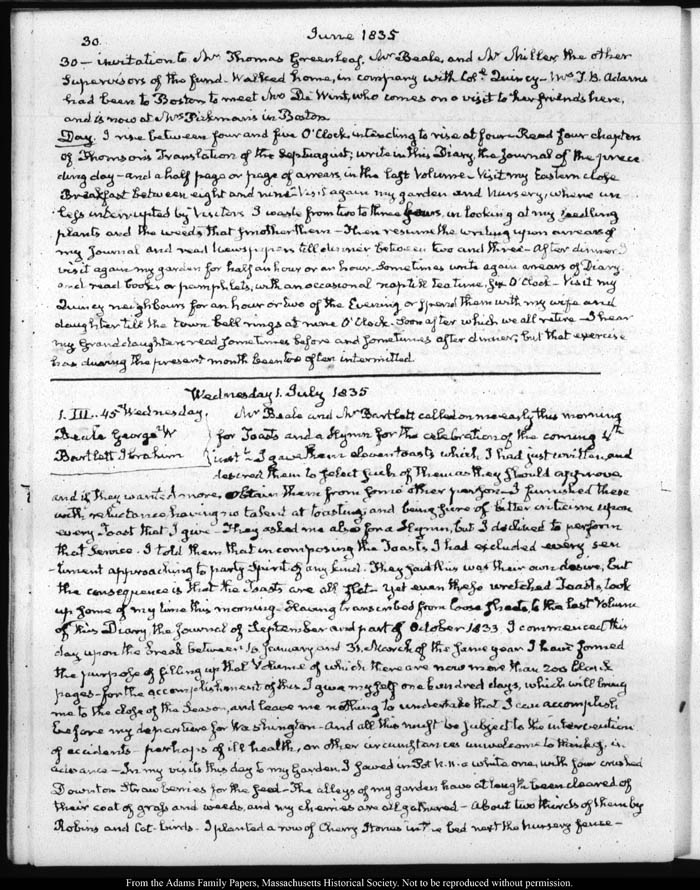 30.
June 1835
30 — invitation to Mr Thomas Greenleaf, Mr Beale, and Mr Miller the other
Supervisors of the fund. Walked home, in company with Coll Quincy — Mrs T. B. Adams
had been to Boston to meet Mrs De Wint, who comes on a visit to her friends here,
and is now at Mrs Pickman's in Boston
Day. I rise between four and five O'Clock, intending to rise at four — Read four chapters
of Thomson's Translation of the Septuagint; write in this Diary, the Journal of the prece
ding day — and a half page or page of arrears, in the last Volume — Visit my Eastern close
Breakfast between eight and nine — Visit again my garden and Nursery, where un
less interrupted by Visitors I waste from two to three hours, in looking at my seedling
plants and the weeds that smother them — Then resume the writing upon arrears of
my Journal and read Newspapers till dinner between two and three — After dinner I
visit again my garden for half an hour or an hour. Sometimes write again arrears of Diary
and read books or pamphlets, with an occasional nap till Tea time, six O'Clock — Visit my
Quincy neighbours for an hour or two of the Evening or spend them with my wife and
daughter till the town bell rings at nine O'Clock. Soon after which we all retire — I hear
my Grand daughters read sometimes before and sometimes after dinner; but that exercise
has during the present month been too often intermitted.
Wednesday 1. July 1835
1. III. 45 Wednesday.
Beale George W
Bartlett Ibrahim
Mr Beale and Mr Bartlett called on me early this morning
for Toasts and a Hymn for the celebration of the coming 4th
instt — I gave them eleven toasts which I had just written, and
desired them to select such of them as they should approve
and if they wanted more, obtain them from some other person — I furnished these
with reluctance having no talent at toasting, and being sure of bitter criticism upon
every Toast that I give — They asked me also for a Hymn, but I declined to perform
that service. I told them that in composing the Toasts, I had excluded every sen
timent approaching to party Spirit of any kind. They said this was their own desire, but
the consequence is that the Toasts are all flat — Yet even these wretched Toasts, took
up some of my time this morning. Having transcribed from loose sheets, to the last Volume
of this Diary, the Journal of September and part of October 1833, I commenced this
day upon the break between January and 31. March of the same year I have formed
the purpose of filling up that Volume of which there are now more than 200 blank
pages — for the accomplishment of this I give myself one hundred days, which will bring
me to the close of the Season, and leave me nothing to undertake that I can accomplish
before my departure for Washington — And all this must be subject to the intervention
of accidents — perhaps of ill health, or other circumstances unwelcome to think of, in
advance — In my visits this day to my Garden, I sowed in Pot a white one, with four crushed
Downton Strawberries for the seed — The alleys of my garden have at length been cleared of
their coat of grass and weeds, and my cherries are all gathered — About two thirds of them by
Robins and Cat-birds. I planted a row of Cherry Stones in the bed next the nursery fence —
From the Adams Family Papers, Massachusetts Historical Society. Not to be reproduced without permission.